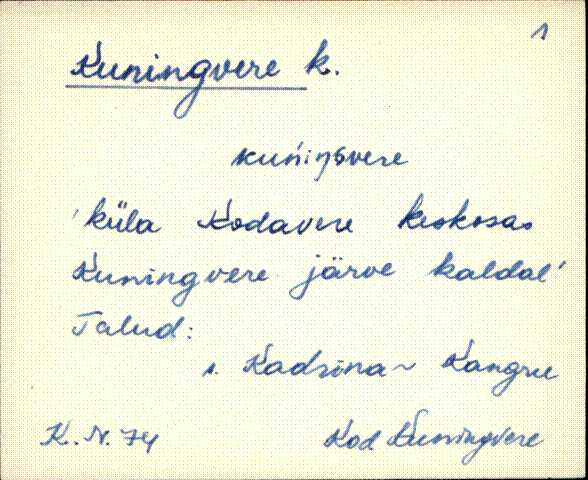 1
Kuningvere k.
kuńiŋgvere
'küla Kodavere keskosas
Kuningvere järve kaldal'
Talud:
1. Kadrina ~ Kangru
K. N. 74 Kod Kuningvere